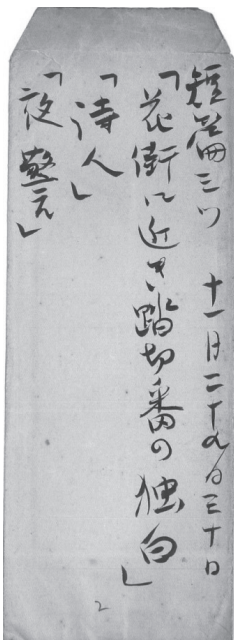 短篇三ツ　十一月二十九日三十日
「花街に近き踏切番の独白」
「詩人」
「夜警」
2